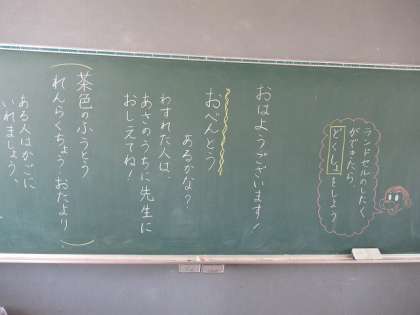 ランドセルのしたく
ができたら、
どくしょをしよう
おはようございます!
おべんとう
あるかな?
わすれた人は、
あさのうちに先生に
おしえてね!
(茶色のふうとう
れんらくちょう おたより)
ある人はかごに
いれましょう。